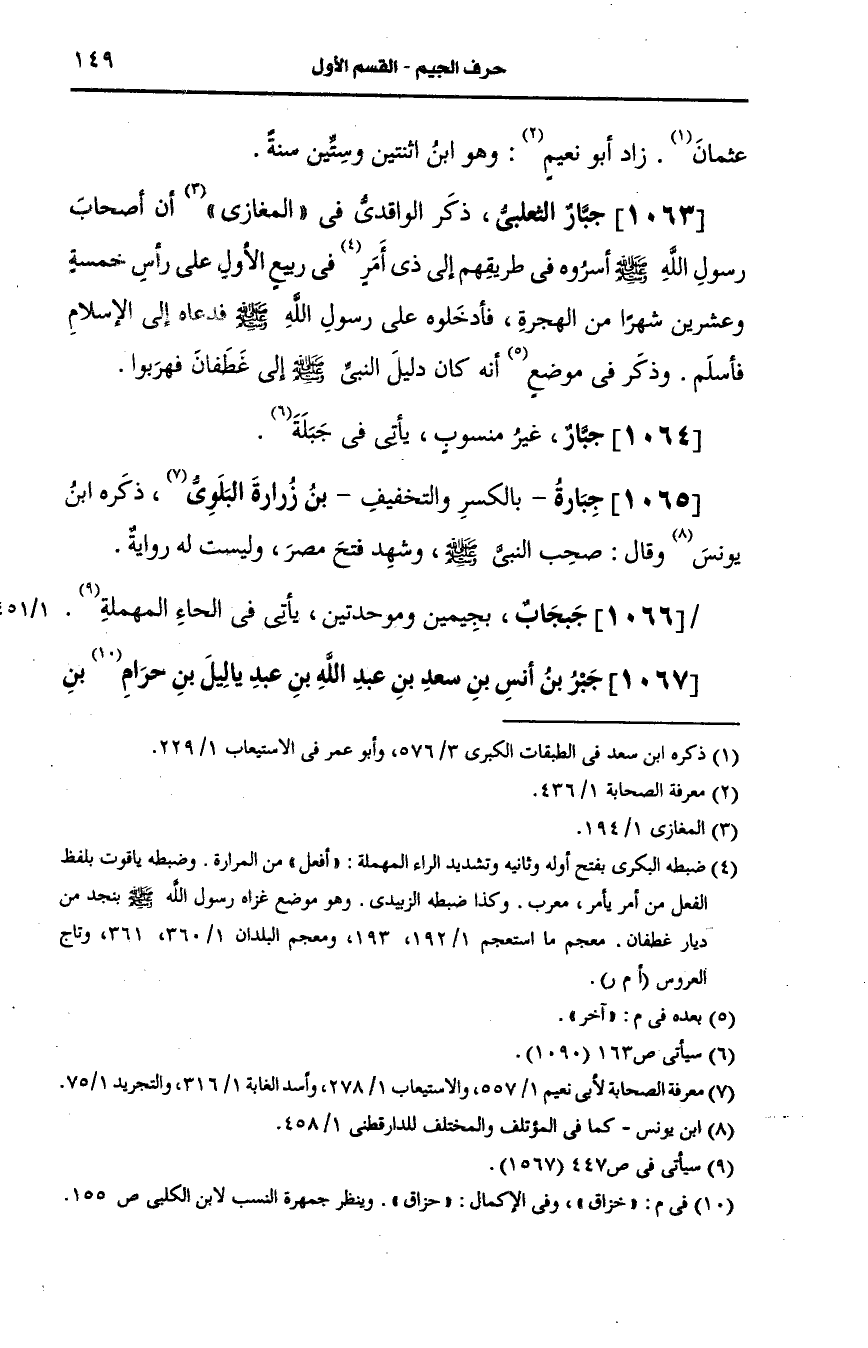 حرف الجيم - القسم الأول ١٤٩
عثمانَ(١) . زاد أبو نعيمٍ(٢) : وهو ابنُ اثنتين وسِتِّين سنةً .
[١٠٦٣] جبَّارٌ الثعلبىُّ ، ذكَر الواقدىُّ فى « المغازى »(٣) أن أصحابَ
رسولِ اللَّهِ ﷺ أسرُوه فى طريقِهم إلى ذى أَمَرٍ(٤) فى ربيعٍ الأولِ على رأسِ خمسةٍ
وعشرين شهرًا من الهجرةِ ، فأدخَلوه على رسولِ اللَّهِ ﷺ فدعاه إلى الإسلامِ
فأسلَم . وذكَر فى موضعٍ(٥) أنه كان دليلَ النبىِّ ﷺ إلى غَطَفانَ فهرَبوا .
[١٠٦٤] جبَّارٌ ، غيرُ منسوبٍ ، يأتِى فى جَبَلَةَ(٦) .
[١٠٦٥] جِبارةُ - بالكسرِ والتخفيفِ - بنُ زُرارةَ البَلَوِىُّ(٧) ، ذكَره ابنُ
يونسَ(٨) وقال : صحِب النبىَّ ﷺ ، وشهِد فتحَ مصرَ ، وليست له روايةٌ .
/[١٠٦٦] جَبجَابٌ ، بجيمين وموحدتين ، يأتِى فى الحاءِ المهملةِ(٩) . ٤٥١/١
[١٠٦٧] جَبْرُ بنُ أنسِ بنِ سعدِ بنِ عبدِ اللَّهِ بنِ عبدِ يالِيلَ بنِ حرَامِ(١٠) بنِ
(١) ذكره ابن سعد فى الطبقات الكبرى ٣/ ٥٧٦، وأبو عمر فى الاستيعاب ١/ ٢٢٩.
(٢) معرفة الصحابة ١/ ٤٣٦.
(٣) المغازى ١/ ١٩٤.
(٤) ضبطه البكرى بفتح أوله وثانيه وتشديد الراء المهملة : « أفعل » من المرارة . وضبطه ياقوت بلفظ
الفعل من أمر يأمر ، معرب . وكذا ضبطه الزبيدى . وهو موضع غزاه رسول اللَّه ﷺ بنجد من
ديار غطفان . معجم ما استعجم ١/ ١٩٢، ١٩٣، ومعجم البلدان ١/ ٣٦٠، ٣٦١، وتاج
العروس (أ م ر).
(٥) بعده فى م : « آخر » .
(٦) سيأتى ص١٦٣ (١٠٩٠) .
(٧) معرفة الصحابة لأبى نعيم ١/ ٥٥٧، والاستيعاب ١/ ٢٧٨، وأسد الغابة ١/ ٣١٦، والتجريد ١/ ٧٥.
(٨) ابن يونس - كما فى المؤتلف والمختلف للدارقطنى ١/ ٤٥٨.
(٩) سيأتى فى ص٤٤٧ (١٥٦٧) .
(١٠) فى م : « خزاق » ، وفى الإكمال : « حزاق » . وينظر جمهرة النسب لابن الكلبى ص ١٥٥.